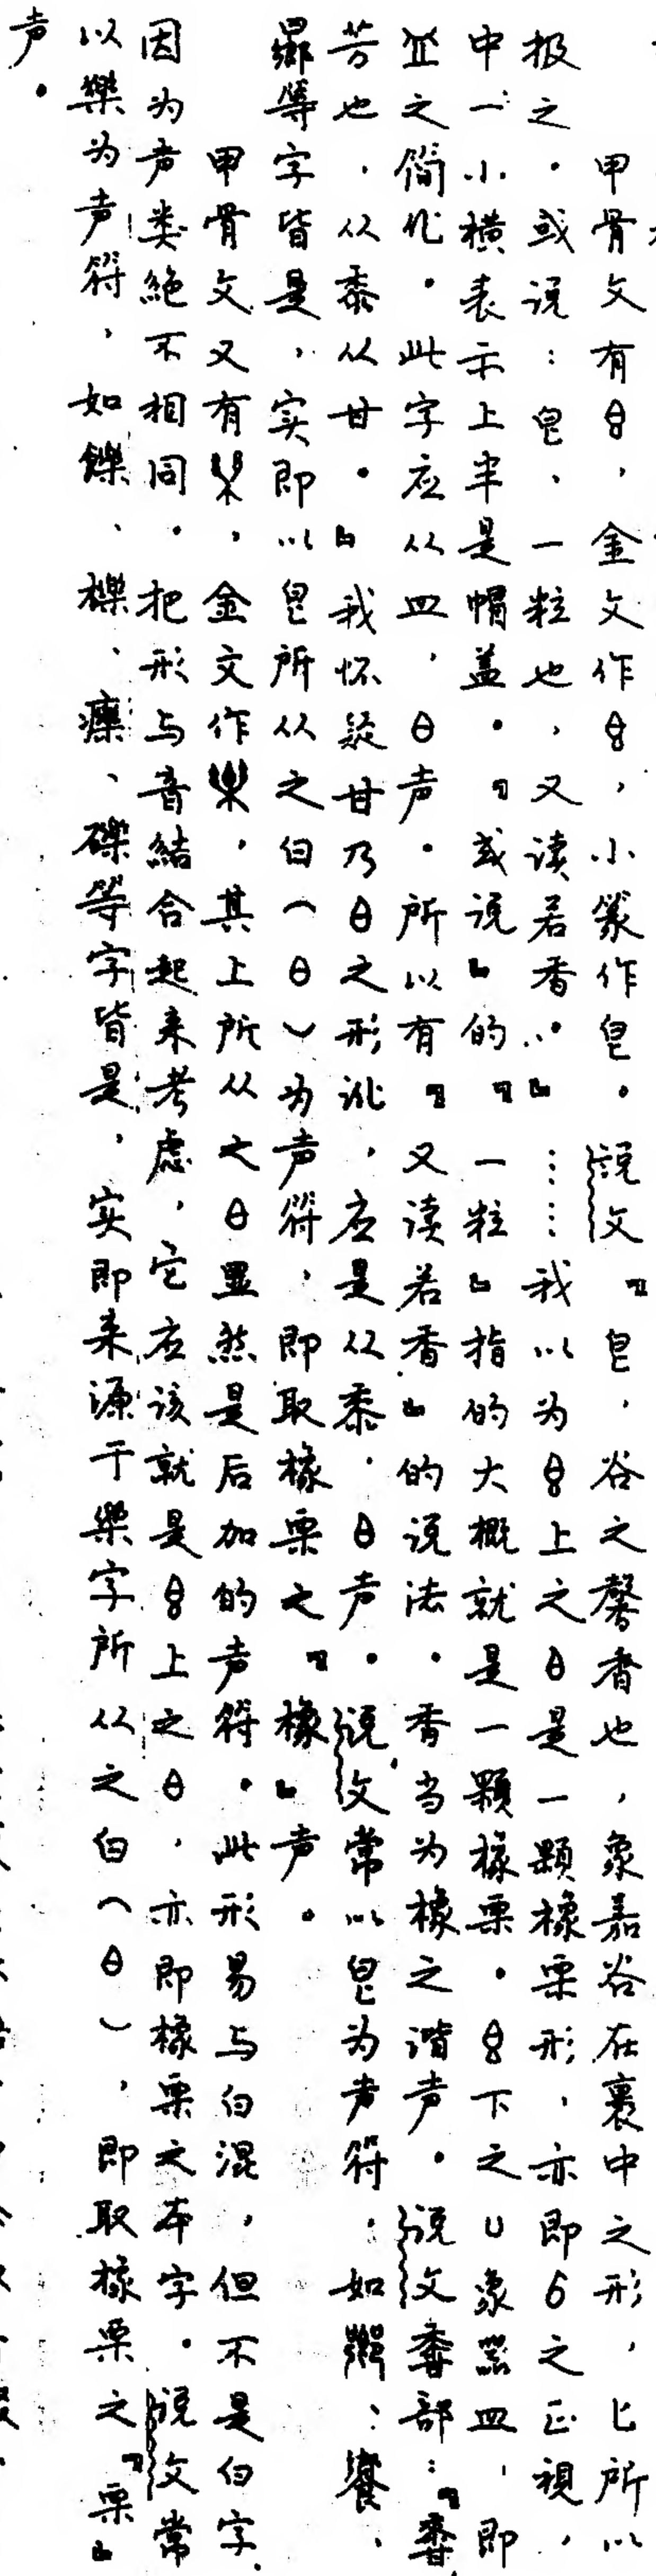 甲骨文有，金文作，小篆作皀。说文『皀，谷之馨香也，象嘉谷在裹中之形，匕所以
扱之。或说：皀，一粒也，又读若香。』……我以为上之是一颗橡栗形，亦即之正视，
中一小横表示上半是帽盖。『或说』的『一粒』指的大概就是一颗橡栗。下之凵象器皿，即
之简化。此字应从皿，声。所以有『又读若香』的说法。香当为橡之谐声。说文香部：『香
芳也，从黍从甘。』我怀疑甘乃之形讹，应是从黍，声。说文常以皀为声符，如、饗、
等字皆是，实即以皀所从之白（）为声符，即取橡栗之『橡』声。
甲骨文又有，金文作樂，其上所从之显然是后加的声符。此形易与白混，但不是白字，
因为声类绝不相同。把形与音结合起来考虑，它应该就是上之，亦即橡栗之本字。说文常
以樂为声符，如鑠、櫟、癳、礫等字皆是，实即来源于樂字所从之白（），即取橡栗之『栗』
声。